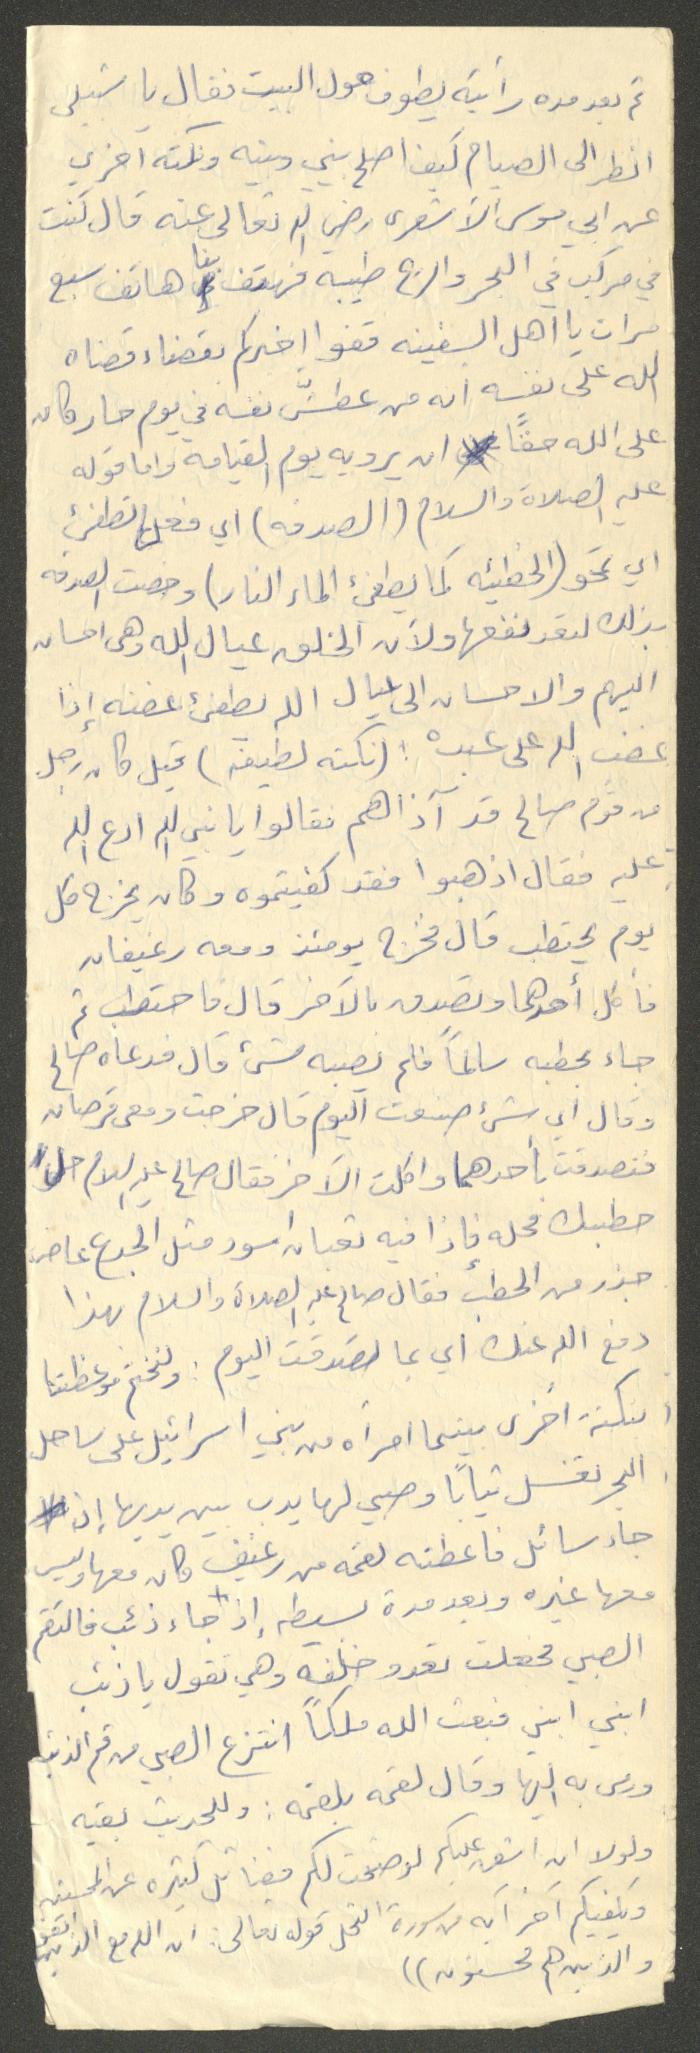 ثم بعد مده رأيته يطوف حول البيت فقال يا شبلى
انظر الى الصيام كيف اصلح بيني وبينه ونكته اخرى
عن ابي موسى الأشعرى رضي الله تعالى عنه قال كنت
في مركب في البحر والريح طيبه فهتف بنا هاتف سبع
مرات يا أهل السفينه قفوا اخبركم بقضاء قضاه
الله على نفسه انه من عطشّ نفسه في يوم حار كان
على الله حقًا ان يرويه يوم القيامه واما قوله
عليه الصلاة والسلام (الصدقه) اي فعلها تطفئ
اي تمحو (الخطيئه كما يطفئ الماء النار) وخصت الصدقه
بذلك لتعد نفعها ولأن الخلق عيال الله وهى احسان
اليهم والاحسان الى عيال الله يطفئ غضبه إذا
غضب الله على عبده : (نكته لطيفه) قيل كان رجل
من قوم صالح قد آذاهم فقالوا يا نبي الله ادع الله
عليه فقال اذهبوا فقد كفيتموه وكان يخرج كل
يوم يحتطب قال فخرج يومئذ ومعه رغيفان
فأكل أحدهما وتصدق بالآخر قال فاحتطب ثم
جاء بحطبه سالماً فلم يصبه شئ قال فدعاه صالح
وقال اي شئ صنعت اليوم قال خرجت ومعى قرصان
فتصدقت بأحدهما واكلت الآخر فقال صالح عليه السلام حل
حطبك فحله فإذا فيه ثعبان اسود مثل الجذع عاض
جذر من الحطب فقال صالح عليه الصلاة والسلام بهذا
دفع الله عنك اي بما تصدقت اليوم : ولنختم موعظتنا
بنكتة أخرى بينما امرأه من بني اسرائيل على ساحل
البحر تغسل ثيابًا وصبي لها يدب بين يديها إذ
جاء سائل فاعطته لقمه من رغيف كان معها وليس
معها غيره وبعد مدة بسيطه إذ جاء ذئب فالتقم
الصبي فجعلت تعدو خلفه وهي تقول يا ذئب
ابني ابني فبعث الله ملكاً انتزع الصبي من فم الذئب
ورمى به اليها وقال لقمه بلقمه : وللحديث بقيه
ولولا ان اشق عليكم لوضحت لكم فضائل كثيره عن المحسنين
ويكفيكم آخر آيه من سورة النحل قوله تعالى : ان الله مع الذين اتقوا
والذين هم محسنون))